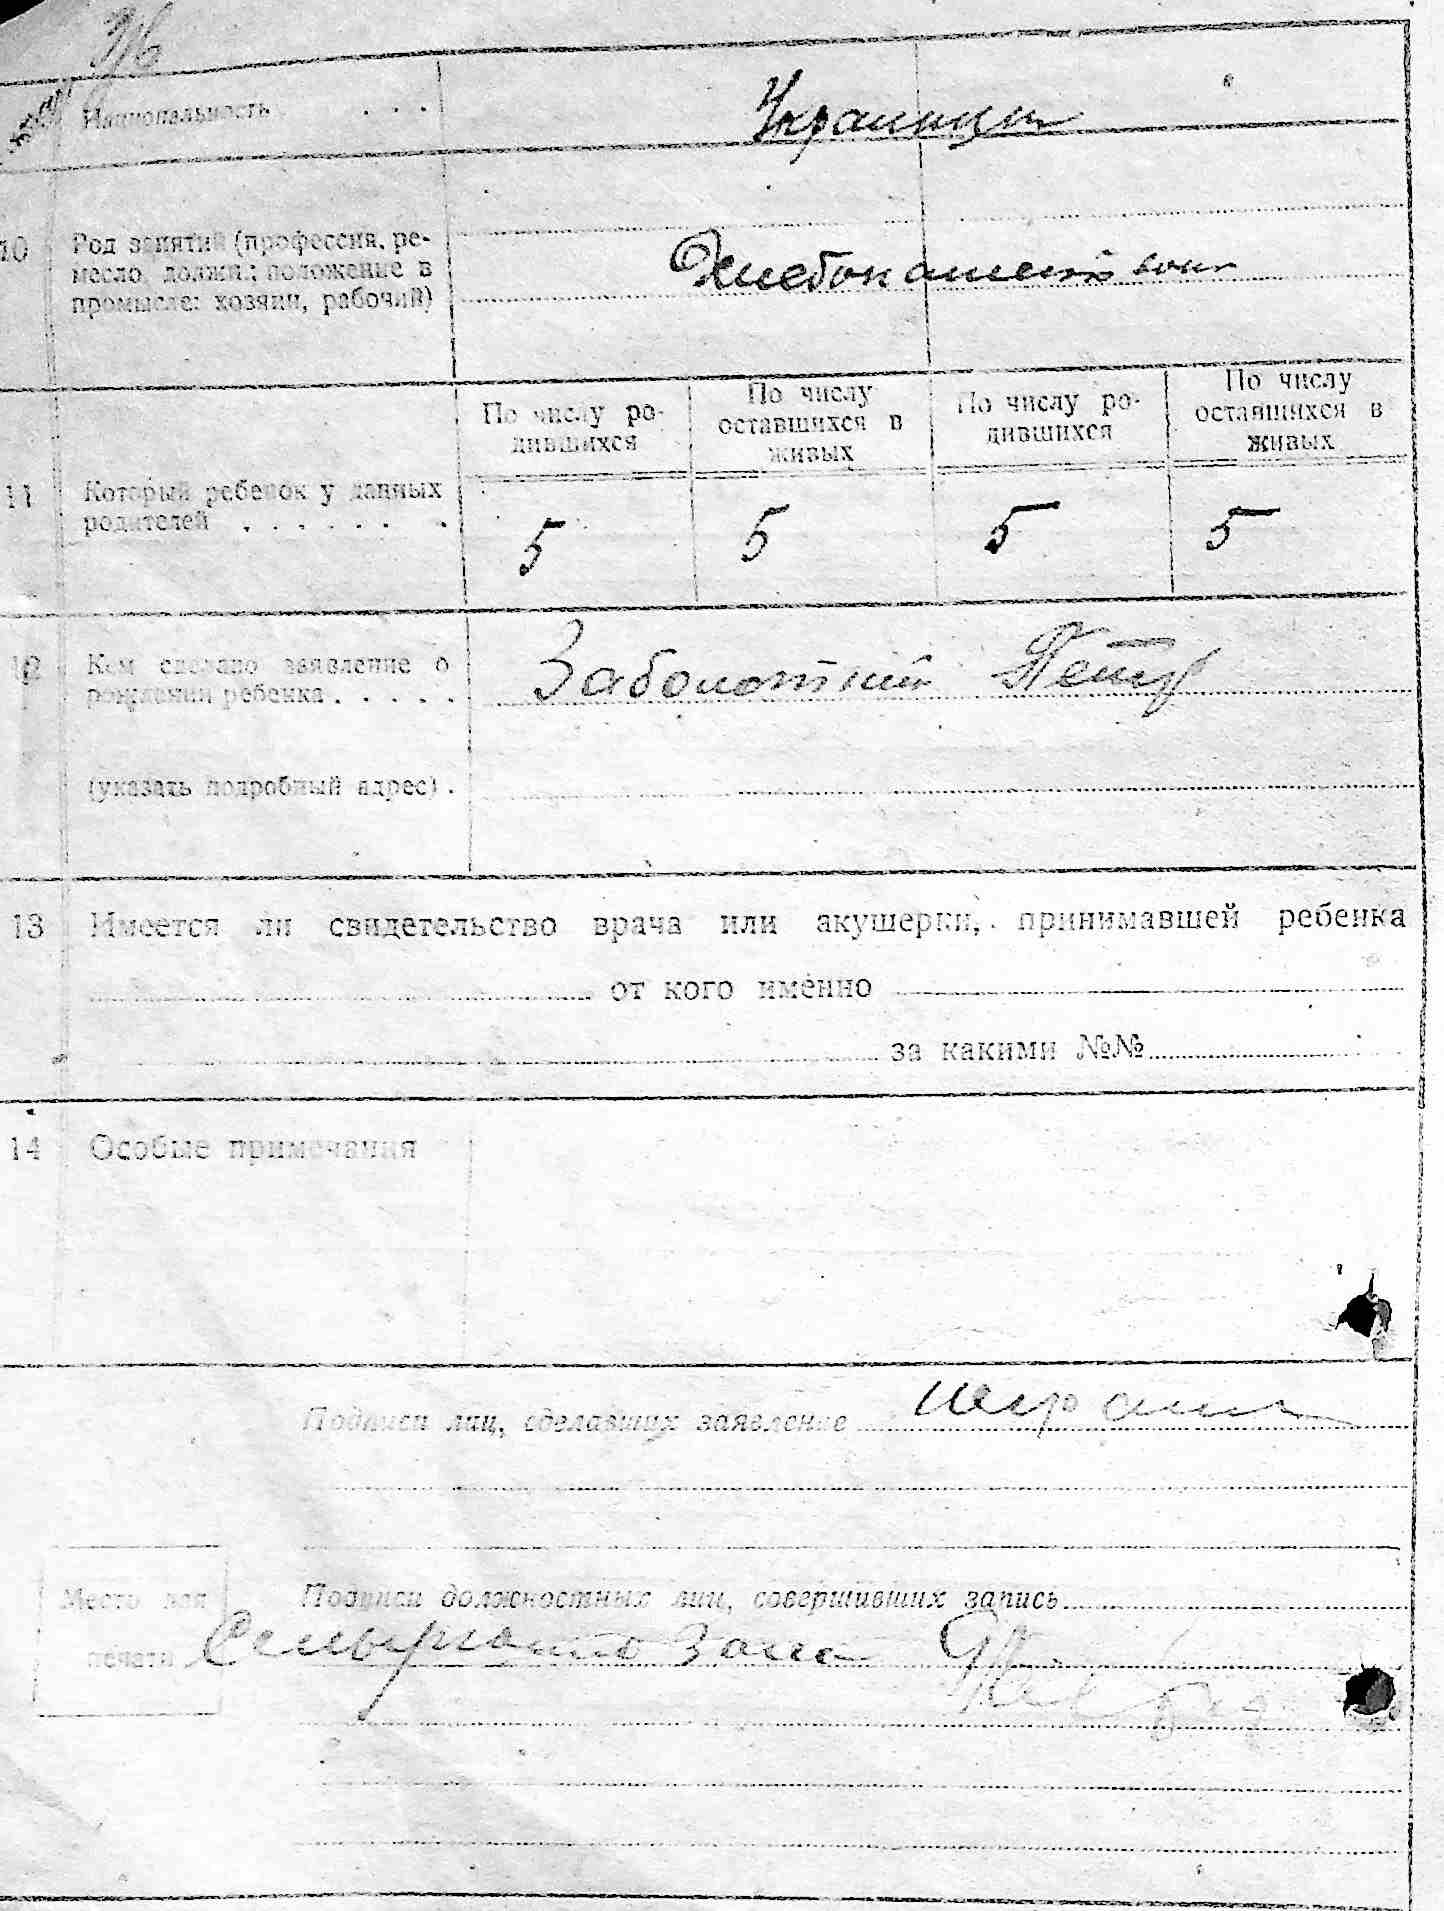 Национальность . . . Украинцы
10 Род занятий (профессия, ре-
месло, должн.; положение в
промысле: хозяин, рабочий)
Хлебопашество
По числу ро-
дившихся
По числу
оставшихся в
живых
По числу ро-
дившихся
По числу
оставшихся в
живых
11 Который ребенок у данных
родителей . . . . . . .
5 5 5 5
12 Кем сделано заявление о
рождении ребенка . . . . .
Заболотний Петр
(указать подробный адрес) .
13 Имеется ли свидетельство врача или акушерки, принимавшей ребенка
от кого именно
за какими №№
14 Особые примечания
Подписи лиц, сделавших заявление
Место для
печати
Подписи должностных лиц, совершивших запись